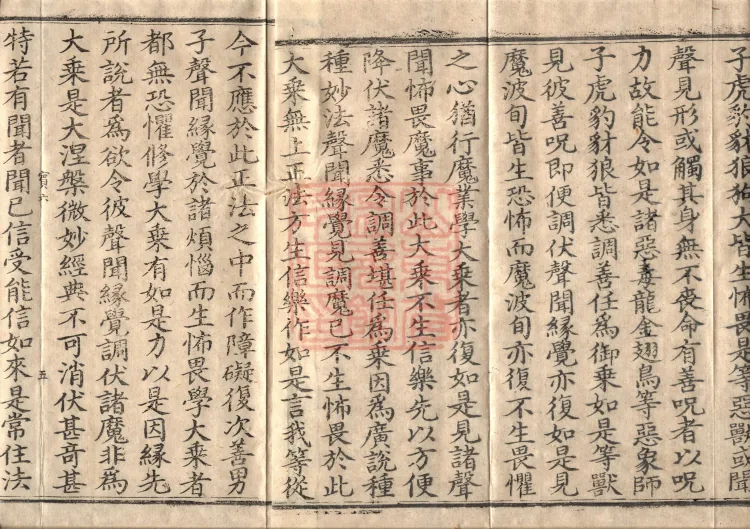 子虎豹豺狼狗犬皆生怖畏是等惡獸或聞
聲見形或觸其身無不喪命有善呪者以呪
力故能令如是諸惡毒龍金翅鳥等惡象師
子虎豹豺狼皆悉調善任爲御乗如是等獸
見彼善呪即便調伏聲聞緣覺亦復如是見
魔波旬皆生恐怖而魔波旬亦復不生畏懼
之心猶行魔業學大乗者亦復如是見諸聲
聞怖畏魔事於此大乗不生信樂先以方便
降伏諸魔悉令調善堪任爲乗因爲廣說種
種妙法聲聞緣覺見調魔已不生怖畏於此
大乗無上正法方生信樂作如是言我等從
今不應於此正法之中而作障礙復次善男
子聲聞緣覺於諸煩惱而生怖畏學大乗者
都無恐懼修學大乗有如是力以是因緣先
所說者爲欲令彼聲聞緣覺調伏諸魔非爲
大乗是大涅槃微妙經典不可消伏甚奇甚
特若有聞者聞已信受能信如來是常住法
五